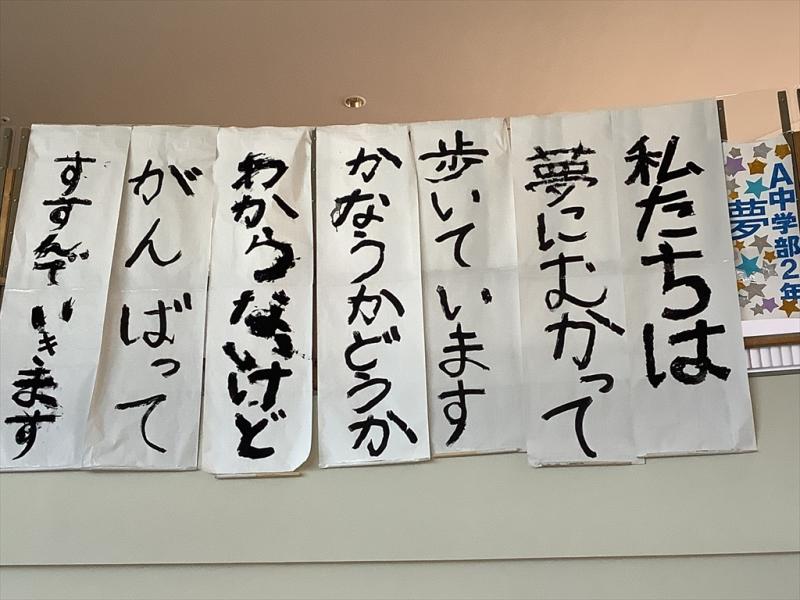 私たちは
夢にむかって
歩いています
かなうかどうか
わからないけど
がんばって
すすんでいきます
A中学部2年
夢